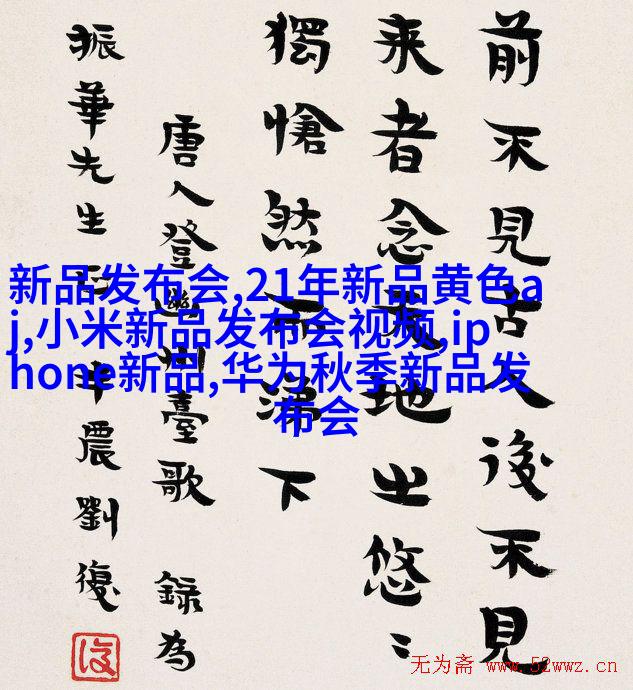 前不見古人後不見
来者念天地之悠〻
獨愴然而涕下
唐人登幽州臺歌 錄為
振華先生 半農劉復
復
新品发布会,21年新品黄色a
j,小米新品发布会视频,ip
hone新品,华为秋季新品发
布会
无为斋 www.52wwz.cn